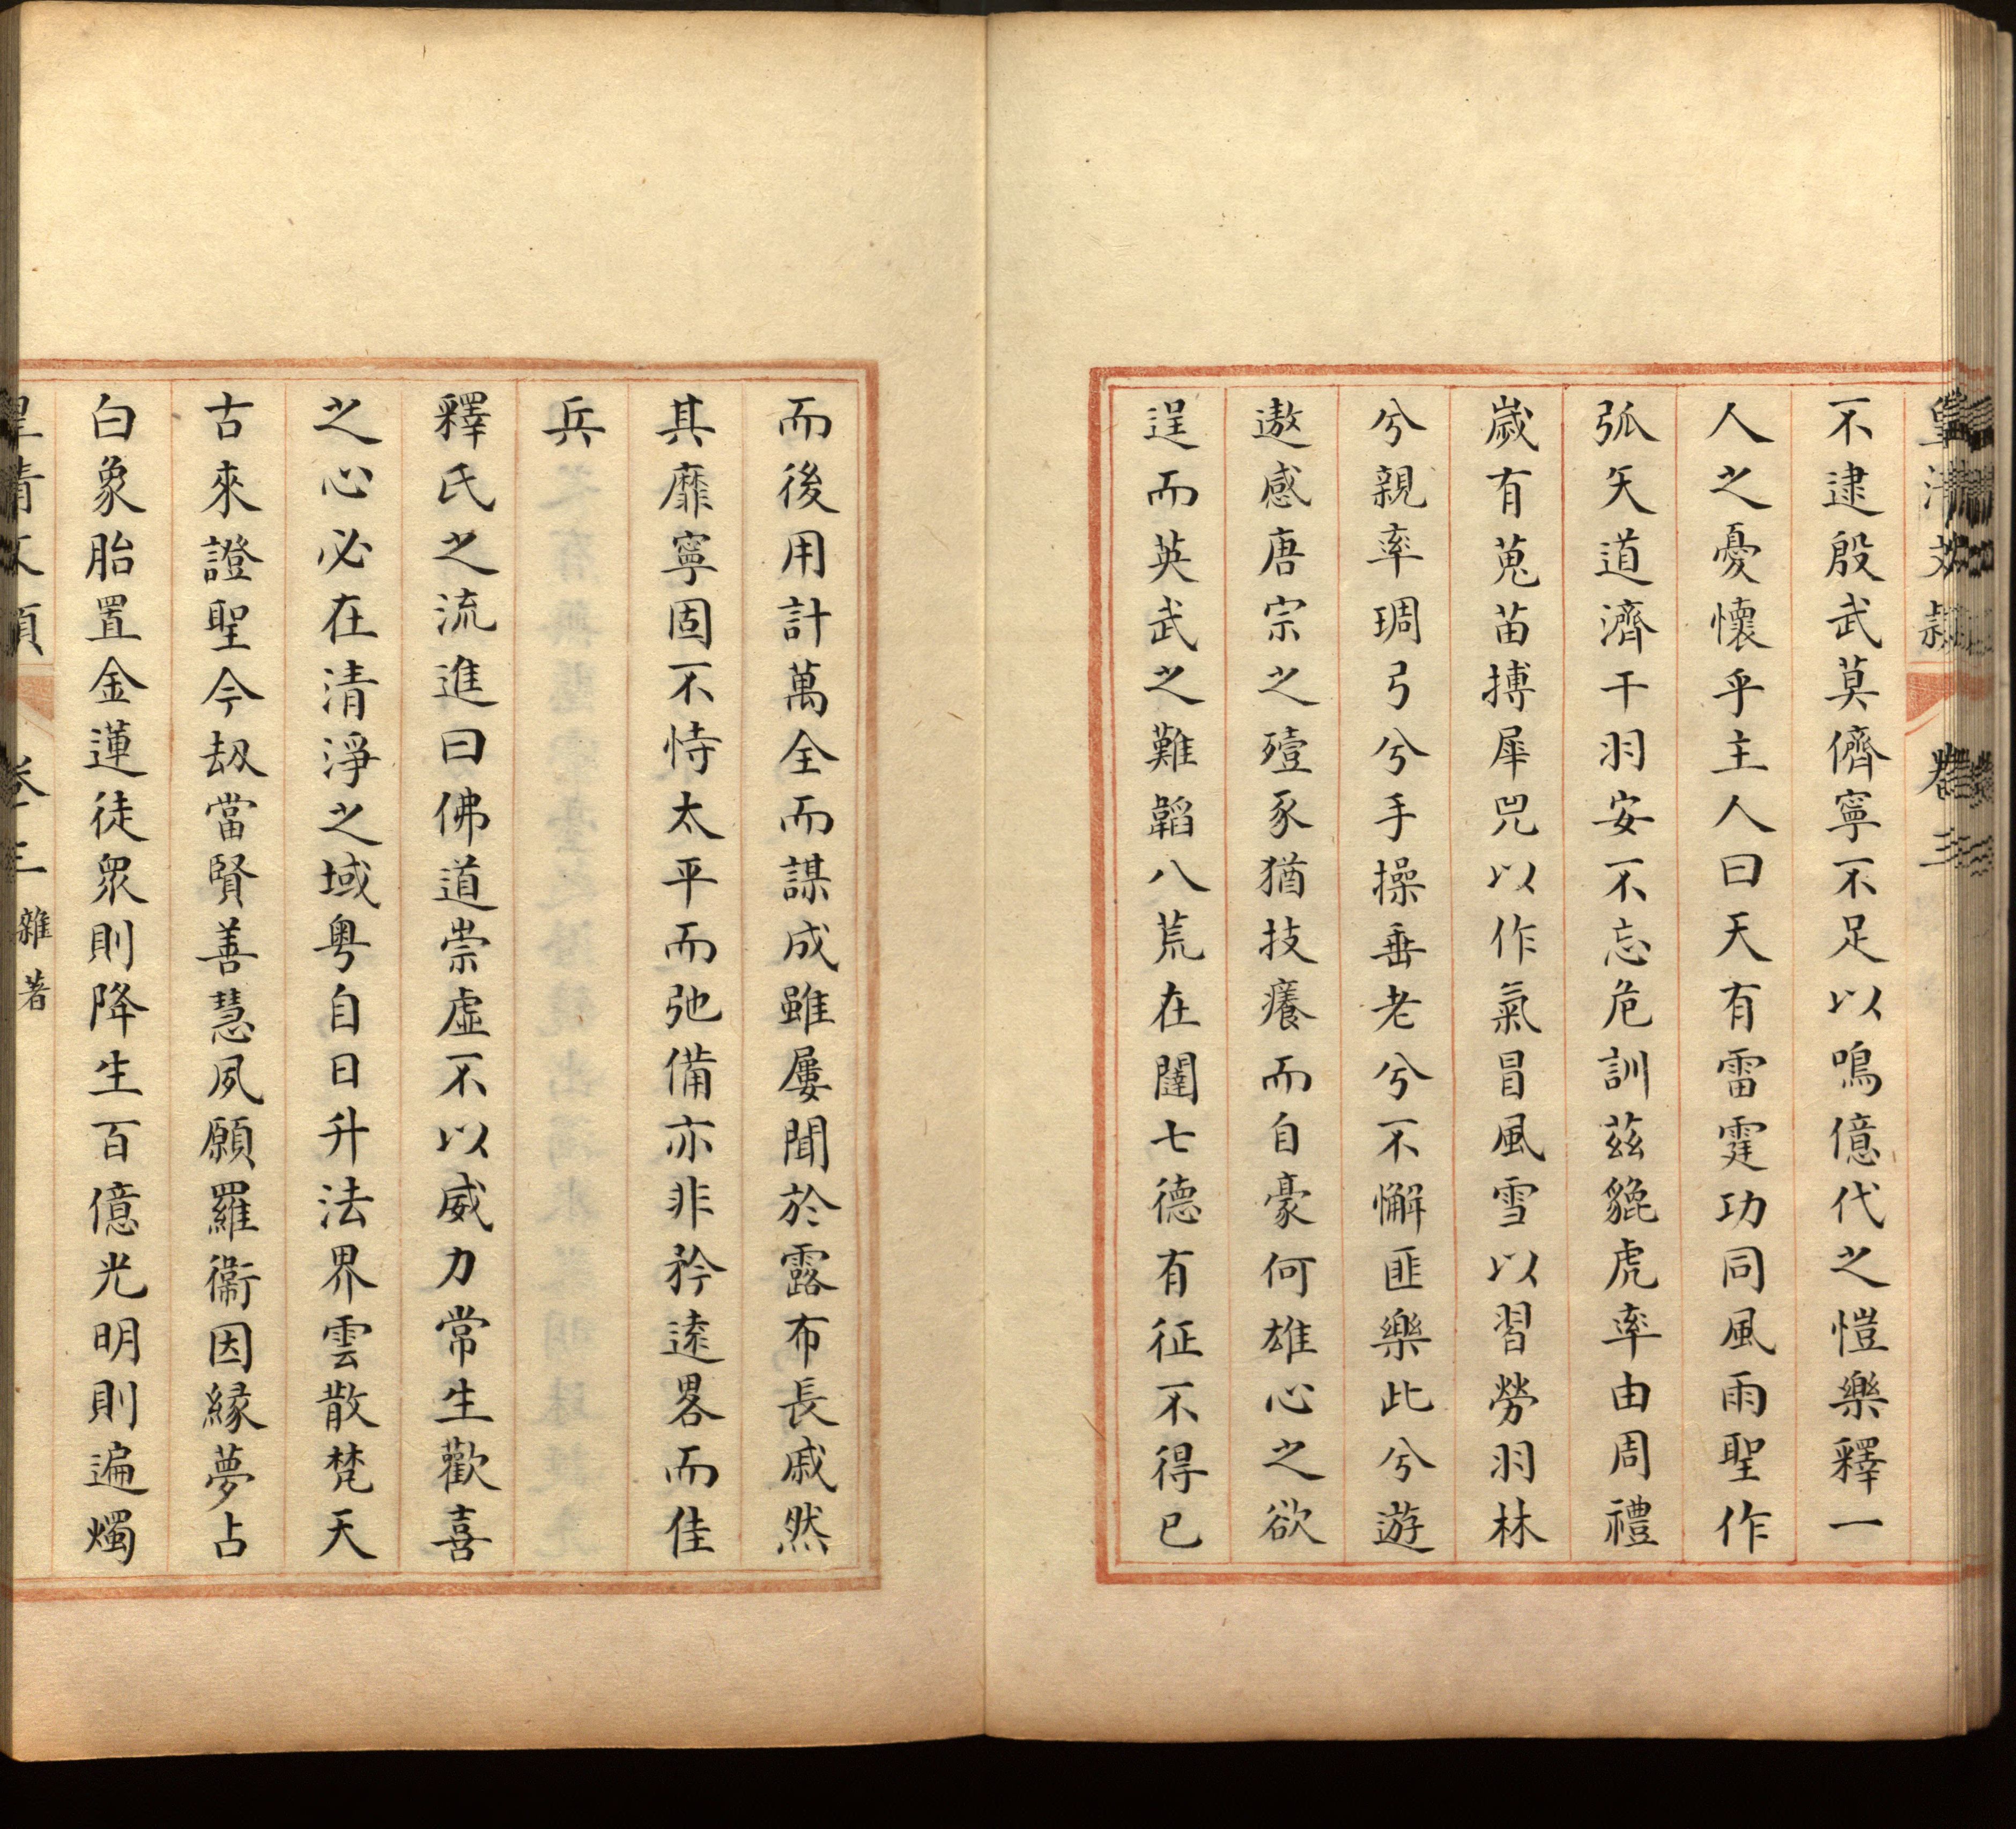 皇清文穎 卷三
不逮殷武莫儕寧不足以鳴億代之愷樂釋一
人之憂懷乎主人曰天有雷霆功同風雨聖作
弧矢道濟干羽安不忘危訓茲貔虎率由周禮
歲有蒐苗搏犀兕以作氣冒風雪以習勞羽林
兮親率琱弓兮手操垂老兮不懈匪樂此兮遊
遨感唐宗之殪豕猶技癢而自豪何雄心之欲
逞而英武之難韜八荒在闥七德有征不得已
而後用計萬全而謀成雖屢聞於露布長戚然
其靡寧固不恃太平而弛備亦非矜遠畧而佳
兵
釋氏之流進曰佛道崇虛不以威力常生歡喜
之心必在清淨之域粵自日升法界雲散梵天
古來證聖今刼當賢善慧夙願羅衞因緣夢占
白象胎置金蓮徒眾則降生百億光明則遍燭
皇清文穎 卷 三 雜著